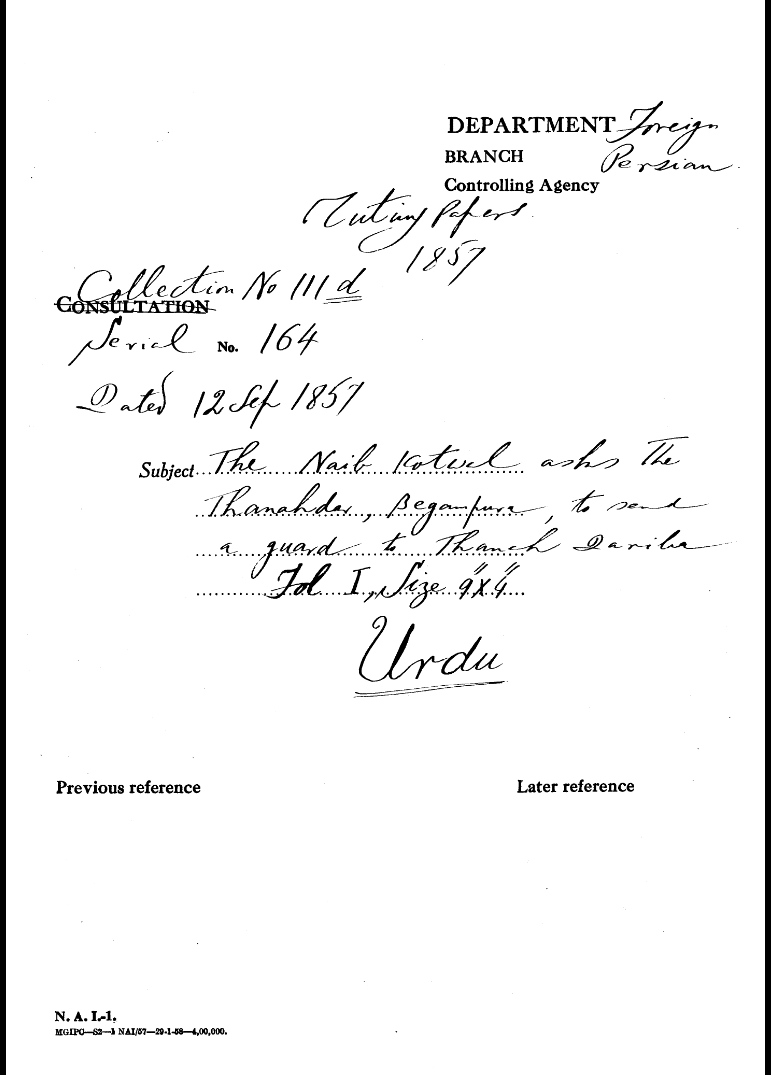 DEPARTMENT Foreign
BRANCH Persian
Controlling Agency
Mutiny Papers
1857
Collection No 111 d
CONSULTATION
Serial No. 164
Dated 12 Sep 1857
Subject The Naib Kotwal asks the
Thanahdar, Begampura, to send
a guard to Thanah Dariba
Fol I, Size 9"x4"
Urdu
Previous reference Later reference
N. A. I.-1.
MGIPC—S2—1 NAI/57—29-1-58—4,00,000.